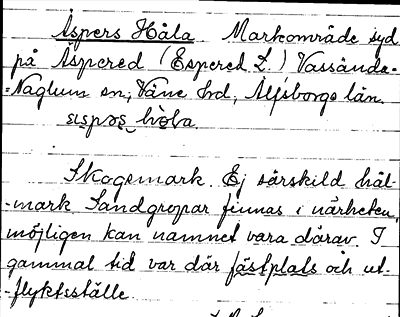 Åspers Håla. Markområde syd
på Äspered (Espered L.) Vassända-
-Naglum sn, Väne hd, Älfsborgs län.
Skogsmark. Ej särskild hål-
-mark. Sandgropar finnas i närheten,
möjligen kan namnet vara därav. I
gammal tid var där fästplats och ut-
-flyktsställe